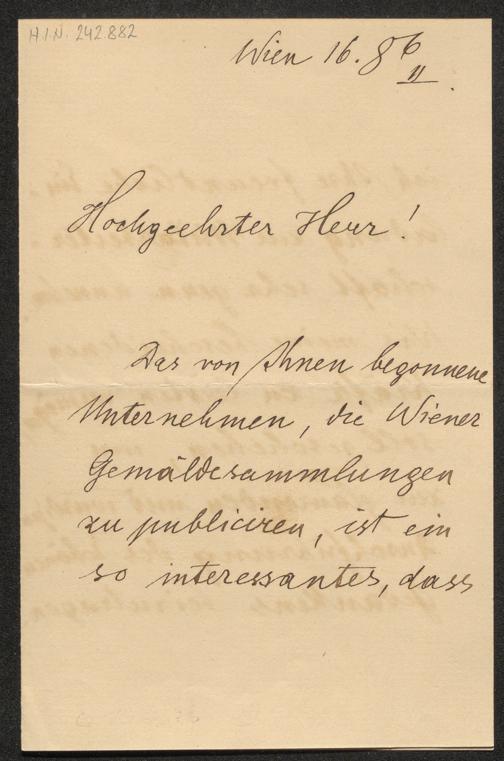 H.I.N. 242.882
Wien 16. 86
11
Hochgeehrter Herr!
Das von Ihnen begonnene
Unternehmen, die Wiener
Gemäldesammlungen
zu publiciren, ist ein
so interessantes, dass